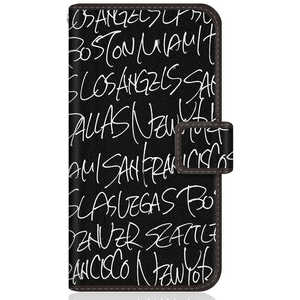 LOSANGELS LAS V
BOSTON MIAMI
LOSANGELS SAN
DALLAS NEWYO
AMI SANFRANCISCO
LASVEGAS BOS
DENVER SEATTLE
FRANCISCO NEWYO